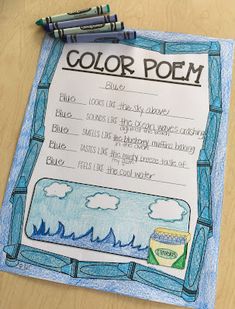 COLOR POEM
Blue
Blue LOOKS LIKE the sky above
Blue SOUNDS LIKE the ocean waves crashing
Blue SMELLS LIKE the blueberry muffins baking
in the oven
Blue TASTES LIKE the minty breeze taste of
my gum
Blue FEELS LIKE the cool water